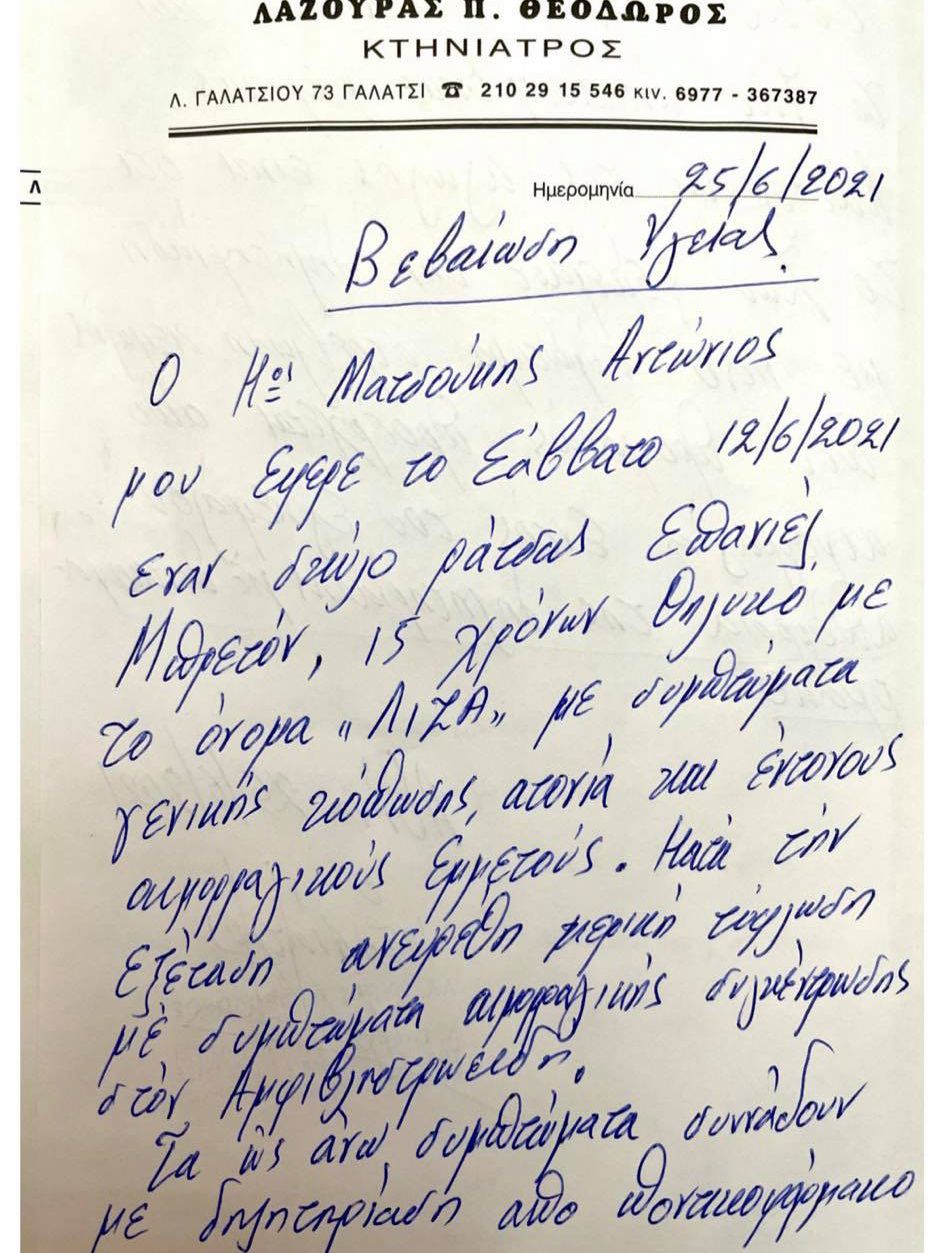 ΛΑΖΟΥΡΑΣ Π. ΘΕΟΔΩΡΟΣ
ΚΤΗΝΙΑΤΡΟΣ
Λ. ΓΑΛΑΤΣΙΟΥ 73 ΓΑΛΑΤΣΙ ☎ 210 29 15 546 κιν. 6977 - 367387
Λ
Ημερομηνία 25/6/2021
Βεβαίωση Υγείας.
Ο Κος Ματσούκης Αντώνιος
μου έφερε το Σάββατο 12/6/2021
έναν σκύλο ράτσας Επανιέλ
Μπρετόν, 15 χρόνων θηλυκό με
το όνομα "ΛΙΖΑ" με συμπτώματα
γενικής κόπωσης, ατονία και έντονους
αιμορραγικούς εμμετούς. Κατά την
εξέταση ανευρέθη μερική τύφλωση
με συμπτώματα αιμορραγικής συγκέντρωσης
στον Αμφιβληστροειδή.
Τα ως άνω συμπτώματα συνάδουν
με δηλητηρίαση από ποντικοφάρμακο